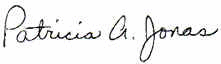 Patricia A. Jonas